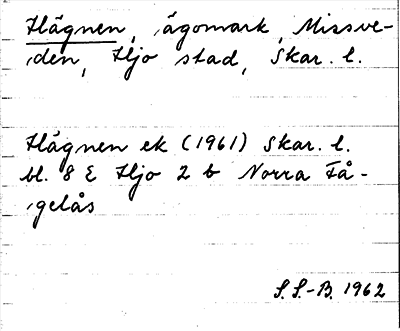 Hägnen, ägomark, Missve-
den, Hjo stad, Skar. l.
Hägnen ek (1961) Skar. l.
bl. 8 E Hjo 2 b Norra Få-
gelås
S. S.-B. 1962